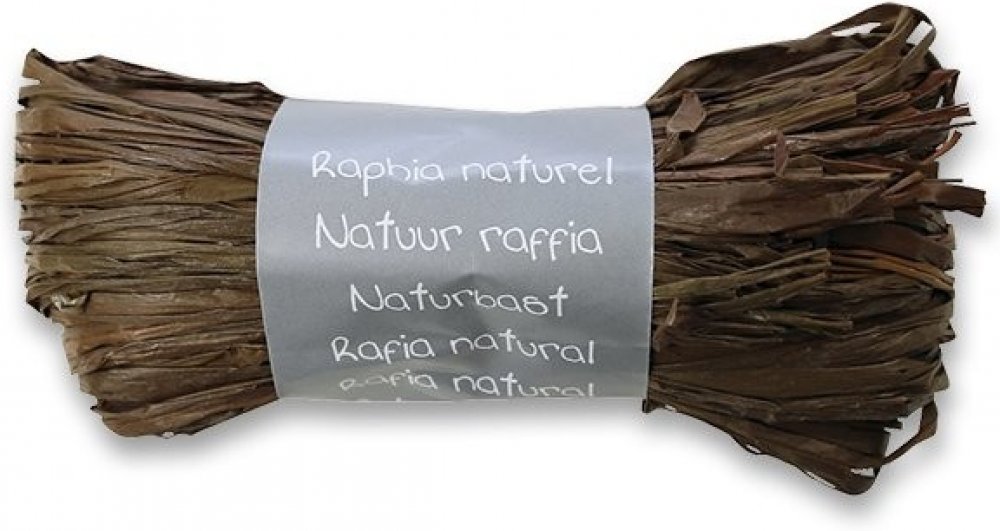 Raphia naturel
Natuur raffia
Naturbast
Rafia natural
Rafia natural